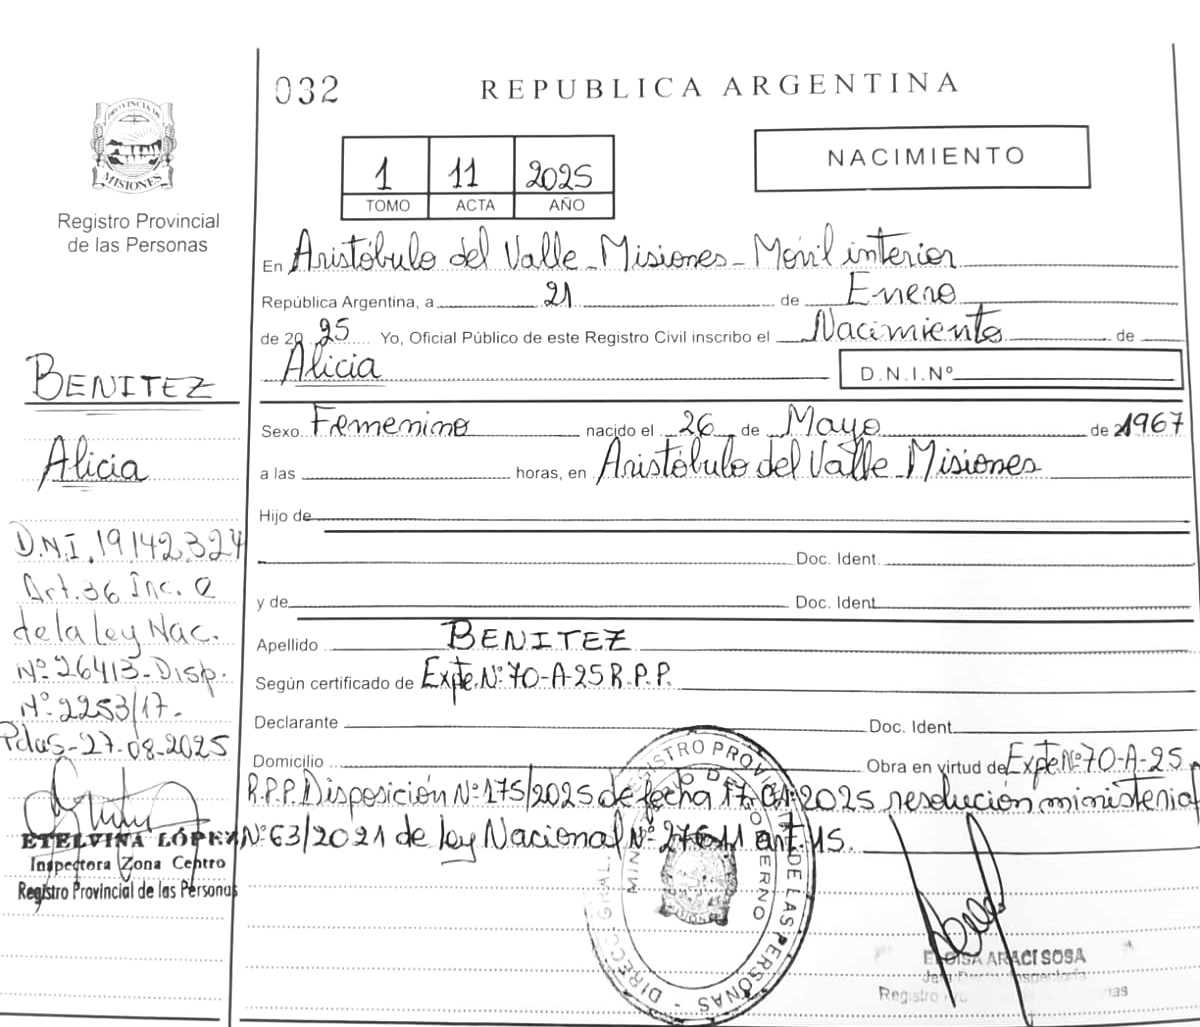 032
REPUBLICA ARGENTINA
PROVINCIA DE
MISIONES
Registro Provincial
de las Personas
1 11 2025
TOMO ACTA AÑO
NACIMIENTO
En Aristóbulo del Valle - Misiones - Móvil interior
República Argentina, a 21 de Enero
de 2025 Yo, Oficial Público de este Registro Civil inscribo el Nacimiento de
Alicia D.N.I.Nº
Sexo Femenino nacido el 26 de Mayo de 1967
a las horas, en Aristóbulo del Valle - Misiones
Hijo de
Doc. Ident.
y de Doc. Ident.
Apellido BENITEZ
Según certificado de Expte. Nº 70-A-25 R.P.P.
Declarante Doc. Ident.
Domicilio Obra en virtud de Expte Nº 70-A-25
R.P.P. Disposición Nº 175/2025 de fecha 17-01-2025 resolución ministerial
Nº 63/2021 de ley Nacional Nº 27611 art. 15.
BENITEZ
Alicia
D.N.I. 19.142.324
Art. 36 Inc. a
de la Ley Nac.
Nº 26413 - Disp.
Nº 2253/17.
Pdas - 27-08-2025
ETELVINA LÓPEZ
Inspectora Zona Centro
Registro Provincial de las Personas
DIRECC. GRAL. REGISTRO PROVINCIAL DE LAS PERSONAS
MINISTERIO DE GOBIERNO
MISIONES
ELOISA ARACI SOSA
Registro